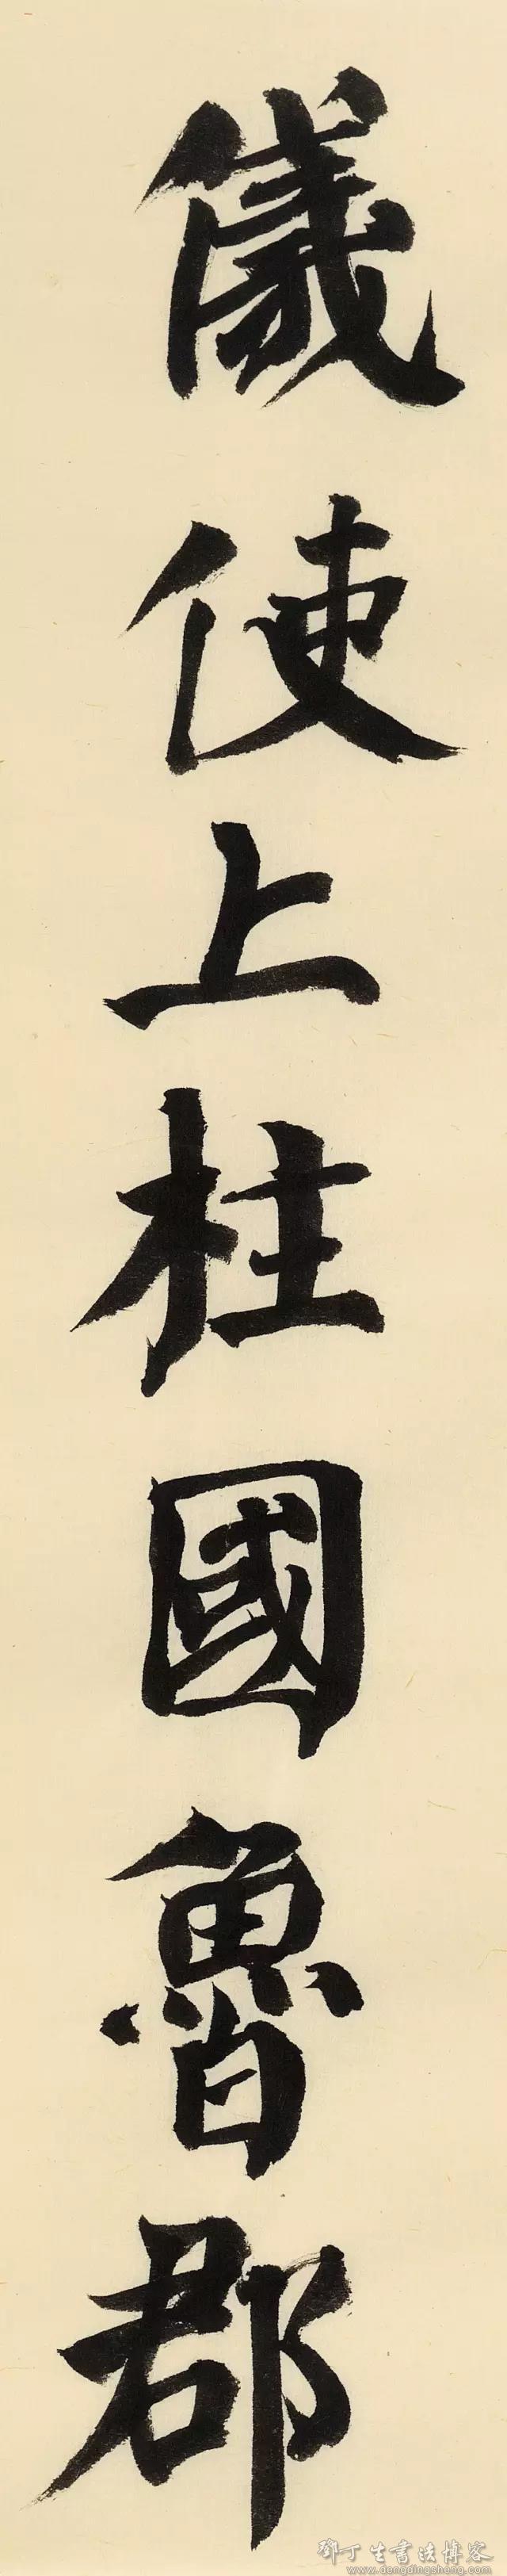 儀使上柱國魯郡
鄧丁生書法博客
www.dengdingsheng.com